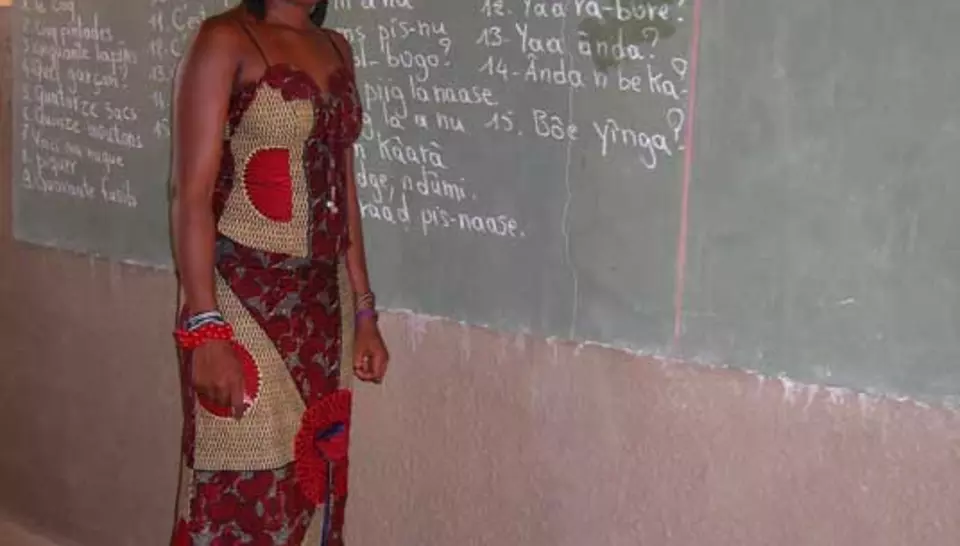 1. Le coq
2. Cinq pintades
3. Cinquante lapins
4. Quel garçon?
5. Quatorze sacs
6. Quinze moutons
7. Voici ma nuque
8. piquer
9. Soixante fusils
11. C'est
12. C
13.
pis-nu
bogo?
piig la naase
la a nu
n Kâarã
ndũmi.
raad pis-naase.
12. Yaa ra-bure?
13- Yaa ãnda?
14- Ãnda n be ka-
15. Bõe yĩnga?